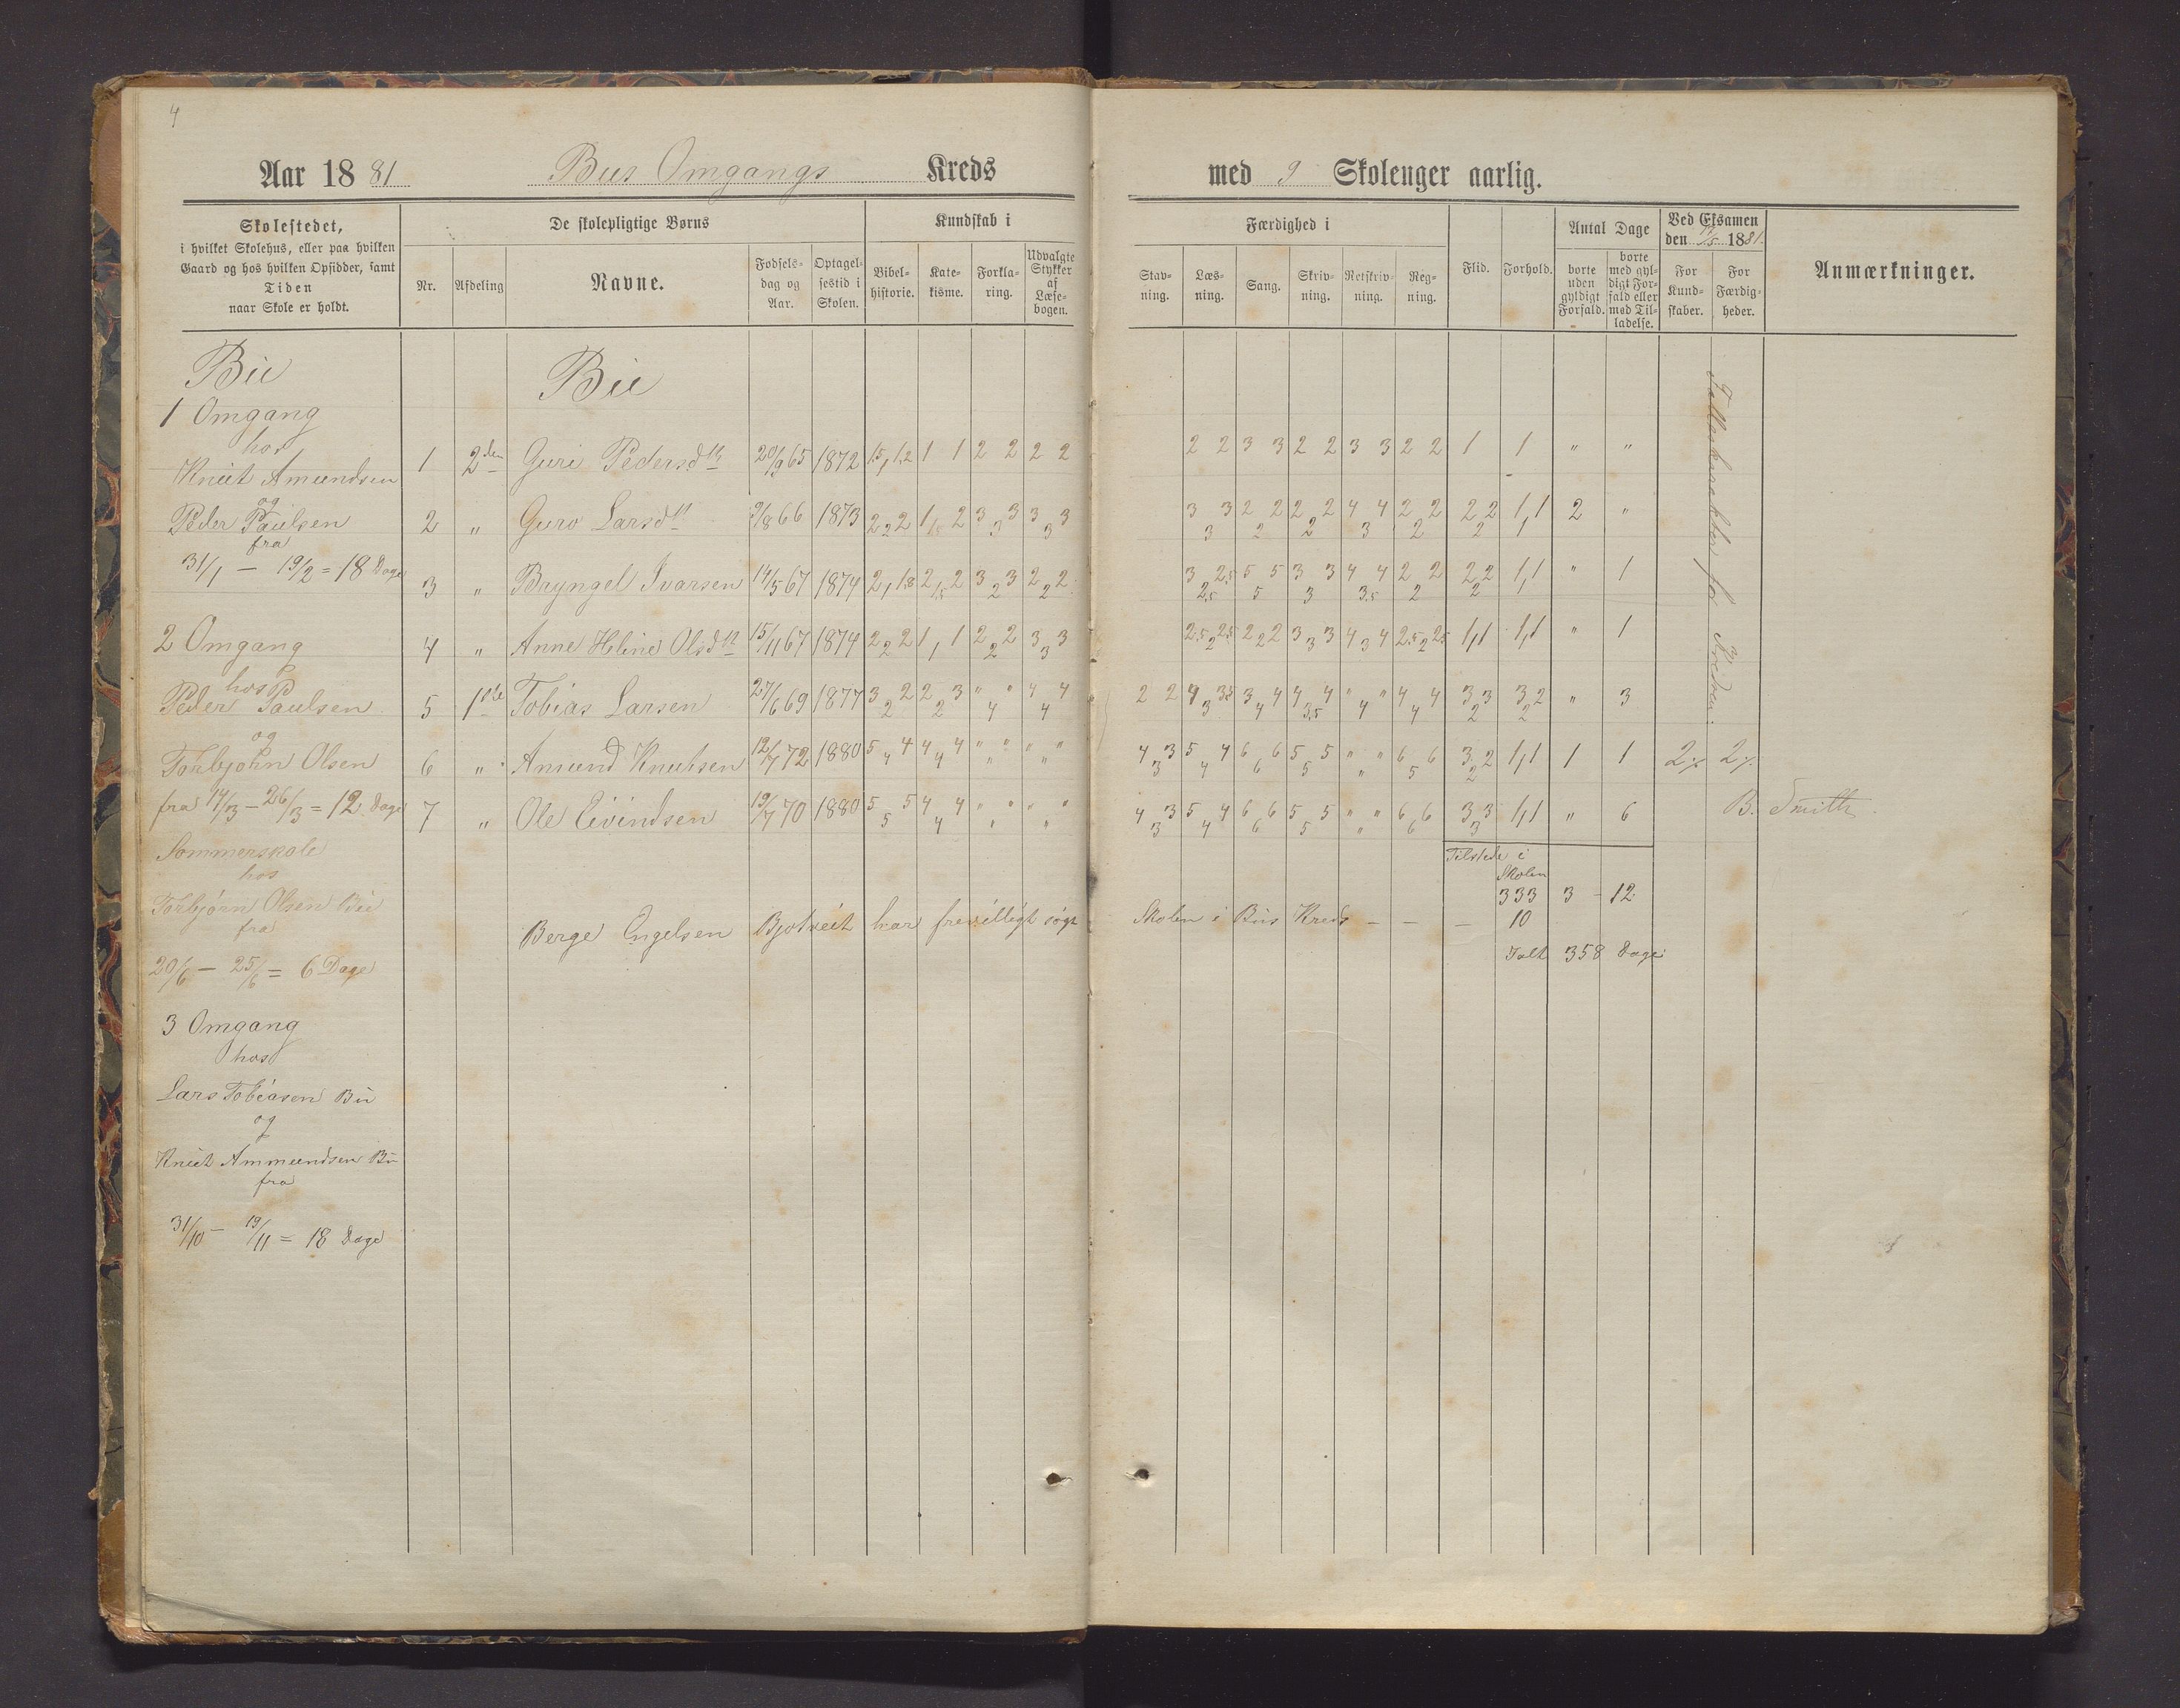 4
Aar 1881 Bus Omgangs Kreds
med 9 Skolenger aarlig.
Skolestedet,
i hvilket Skolehus, eller paa hvilken
Gaard og hos hvilken Opsidder, samt
Tiden
naar Skole er holdt.
De skolepligtige Børns
Nr.
Afdeling
Navne.
Fødsels-
dag og
Aar.
Optagel-
sestid i
Skolen.
Kundskab i
Bibel-
historie.
Kate-
kisme.
Forkla-
ring.
Udvalgte
Stykker
af
Læse-
bogen.
Færdighed i
Stav-
ning.
Læs-
ning.
Sang.
Skriv-
ning.
Retskriv-
ning.
Reg-
ning.
Flid.
Forhold.
Antal Dage
borte
uden
gyldigt
Forfald.
borte
med gyl-
digt For-
fald eller
med Til-
ladelse.
Ved Eksamen
den 1881.
For
Kund-
skaber.
For
Færdig-
heder.
Anmærkninger.
Bu
1 Omgang
hos
Knut Amundsen
og
Peder Paulsen
fra
31/1 — 19/2 = 18 Dage
2 Omgang
hos
Peder Paulsen
og
Torbjørn Olsen
fra 14/3 — 26/3 = 12 Dage
Sommerskole
hos
Torbjørn Olsen Bu
fra
20/6 — 25/6 = 6 Dage
3 Omgang
hos
Lars Tobiasen Bu
og
Knut Ammundsen Bu
fra
31/10 — 19/11 = 18 Dage
Bu
1 2den Guri Pedersdtr 20/9 65 1872 1,5 1 1,2 1 1 2 2 2 2 2 2 3 3 2 2 3 3 2 2 1 1 " "
2 " Guro Larsdtr 9/8 66 1873 2 2 2 1 1,5 2 3 3 3 3 3 3 3 3 3 2 2 2 2 2 2 4 3 4 2 2 2 2 2 2 1 1 1 2 "
3 " Bryngel Ivarsen 14/5 67 1874 2 1 1,8 2 1,5 2 3 2 3 2 2 2 3 2,5 2,5 5 5 5 3 3 3 4 3,5 4 2 2 2 2 2 2 1 1 1 " 1
4 " Anne Heline Olsdtr 15/11 67 1874 2 2 2 1 1 1 2 2 2 3 3 3 2,5 2 2,5 2 2 2 3 3 3 4 3 4 2,5 2 2,5 1 1 1 1 " 1
5 1ste Tobias Larsen 27/6 69 1877 3 2 2 2 2 3 " 4 " 4 4 4 2 2 4 3 3,5 3 4 4 4 3,5 4 " 4 " 4 4 4 3 2 3 3 2 2 " 3
6 " Amund Knutsen 12/7 72 1880 5 4 4 4 4 4 " " " " " " 4 3 3 5 4 4 6 6 6 5 5 5 " " " 6 5 6 3 2 2 1 1 1 1 1 2 2
7 " Ole Eivindsen 19/7 70 1880 5 5 5 4 4 4 " " " " " " 4 3 3 5 4 4 6 6 6 5 5 5 " " " 6 6 6 3 3 3 1 1 1 " 6
for Kredsen.
B. Smith
Tilstede i
Skolen
333 3 — 12
Berge Engelsen Bjotveit har frevilligt søgt Skolen i Bus Kreds — — — 10
Talt 358 Dage